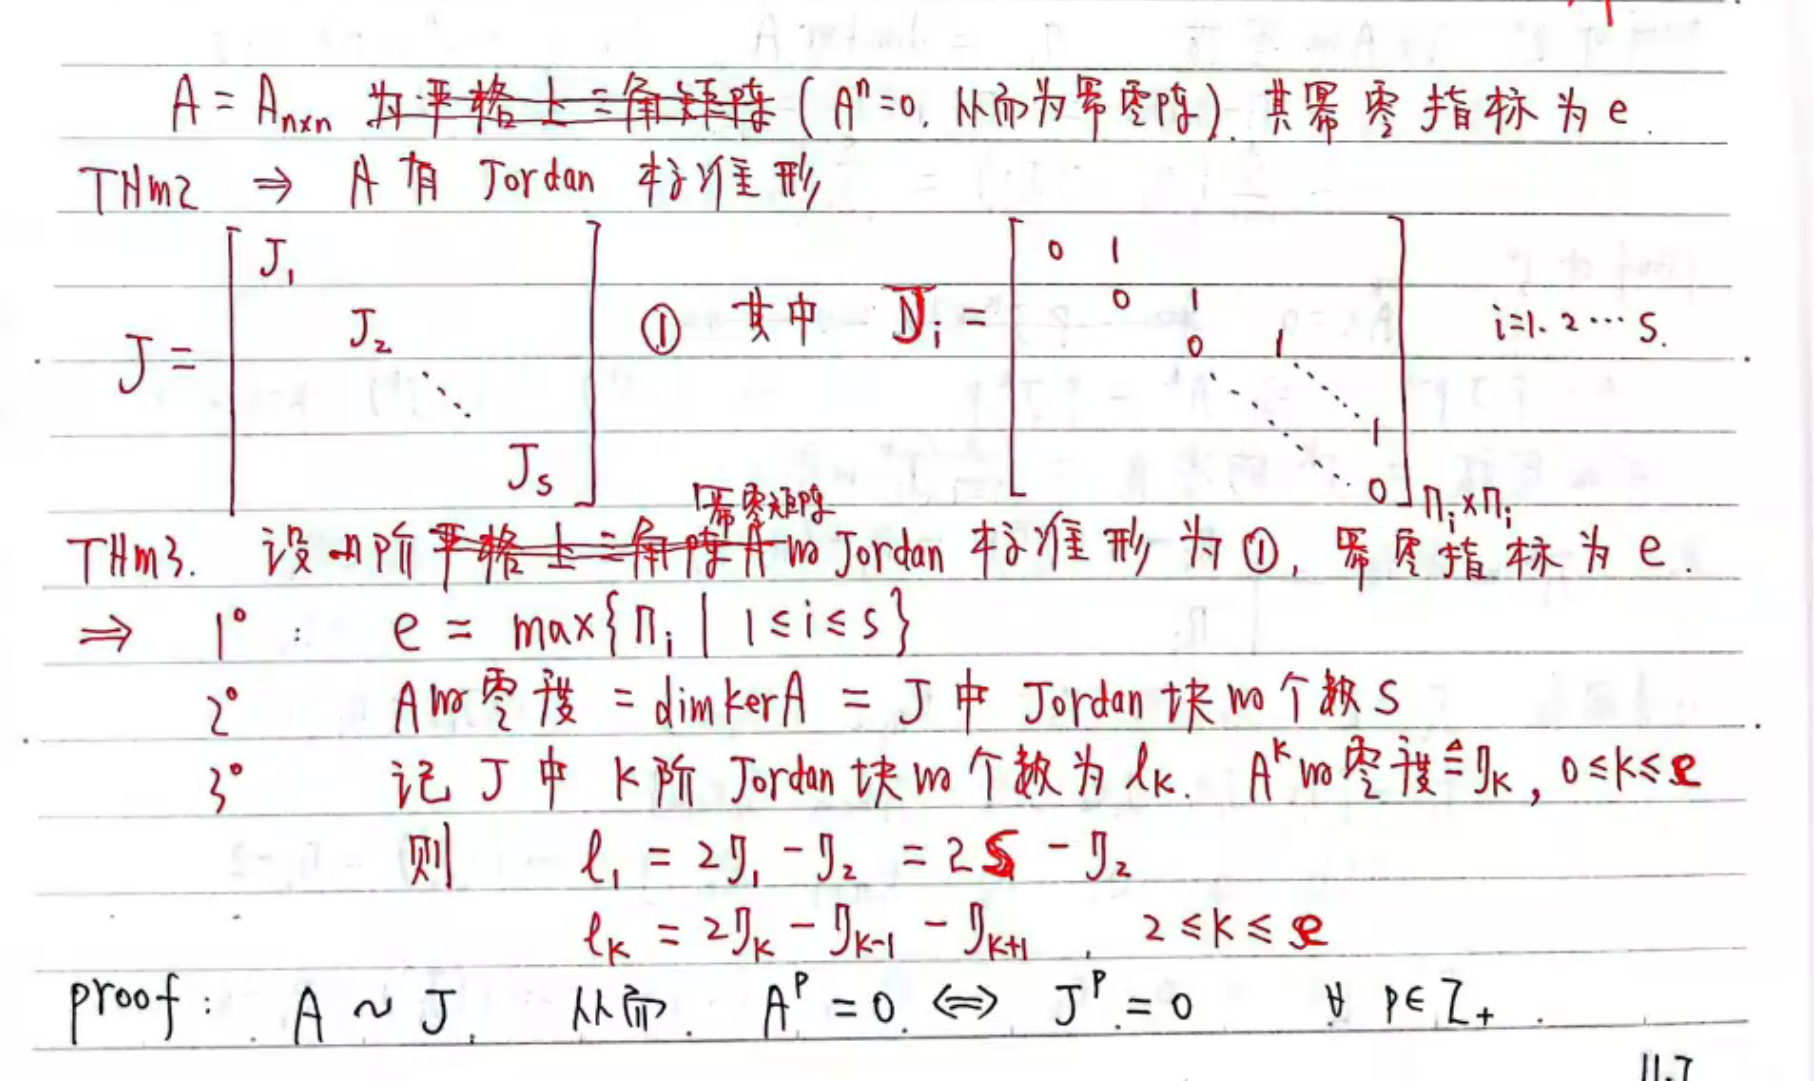 A = Aₙₓₙ 为严格上三角矩阵 (Aⁿ=0, 从而为幂零阵). 其幂零指标为 e.
THm2 ⇒ A 有 Jordan 标准形
J = [ J₁ J₂ ⋱ Jₛ ] ① 其中 Jᵢ = [ 0 1 0 1 0 1 ⋱ ⋱ 1 0 ]nᵢ×nᵢ i=1. 2 ⋯ s.
幂零矩阵
THm3. 设 n阶严格上三角阵 A 的 Jordan 标准形 为 ①, 幂零指标为 e.
⇒ 1° : e = max{nᵢ | 1≤i≤s}
2° A的零度 = dimkerA = J 中 Jordan 块的个数 s
3° 记 J 中 k阶 Jordan 块的个数为 lₖ. Aᵏ的零度≜ηₖ, 0≤k≤e
则 l₁ = 2η₁ - η₂ = 2s - η₂
lₖ = 2ηₖ - ηₖ₋₁ - ηₖ₊₁, 2≤k≤e
proof: A ~ J. 从而. Aᵖ = 0. ⇔ Jᵖ = 0 ∀ p∈Z₊.